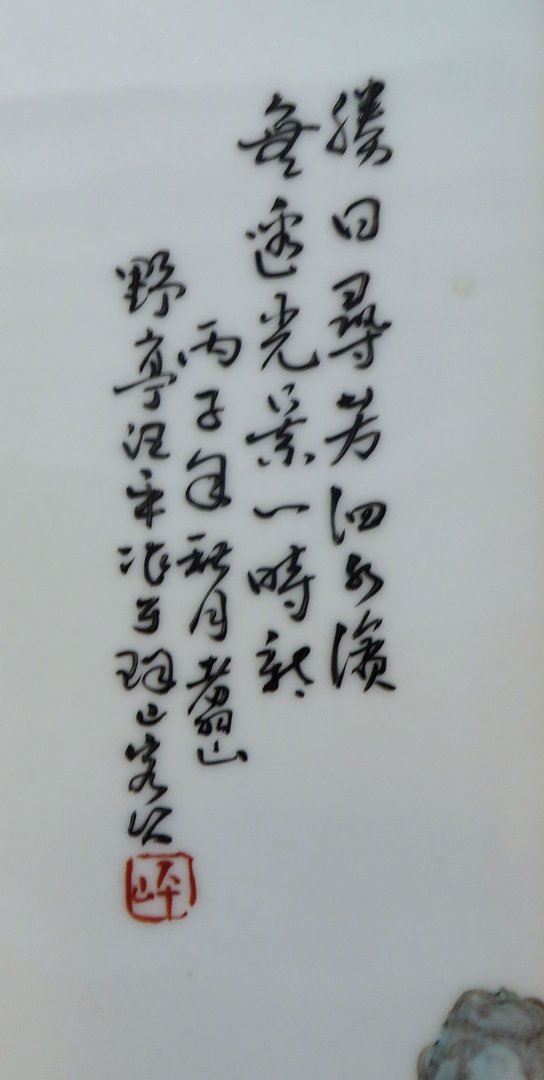 勝日尋芳泗水濱
無邊光景一時新
丙子年秋月翥山
野亭汪平作于珠山客次